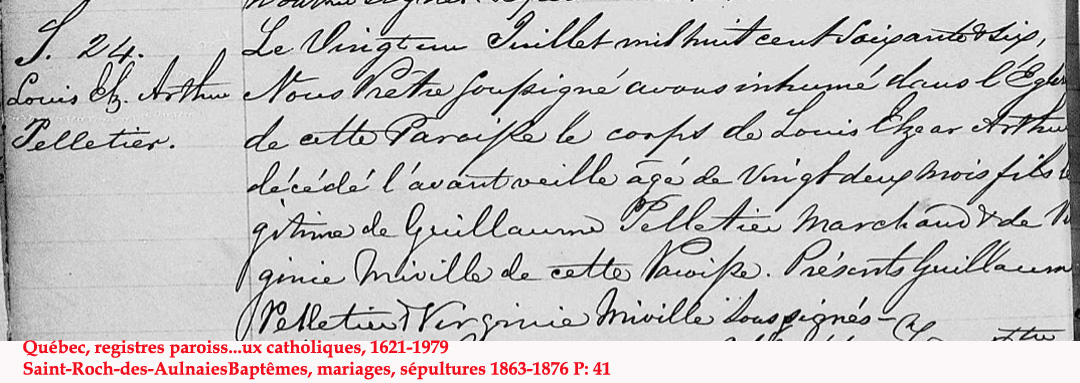 S. 24.
Louis Elz. Arthur
Pelletier.
Le Vingt un Juillet mil huit cent soixante & six,
Nous Prêtre soussigné avons inhumé dans l'Eglise
de cette Paroisse le corps de Louis Elzear Arthur
décédé l'avant veille âgé de Vingt deux mois fils lé
gitime de Guillaume Pelletier Marchand & de Vir
ginie Miville de cette Paroisse. Présents Guillaume
Pelletier & Virginie Miville Soussignés –
Québec, registres paroiss...ux catholiques, 1621-1979
Saint-Roch-des-AulnaiesBaptêmes, mariages, sépultures 1863-1876 P: 41